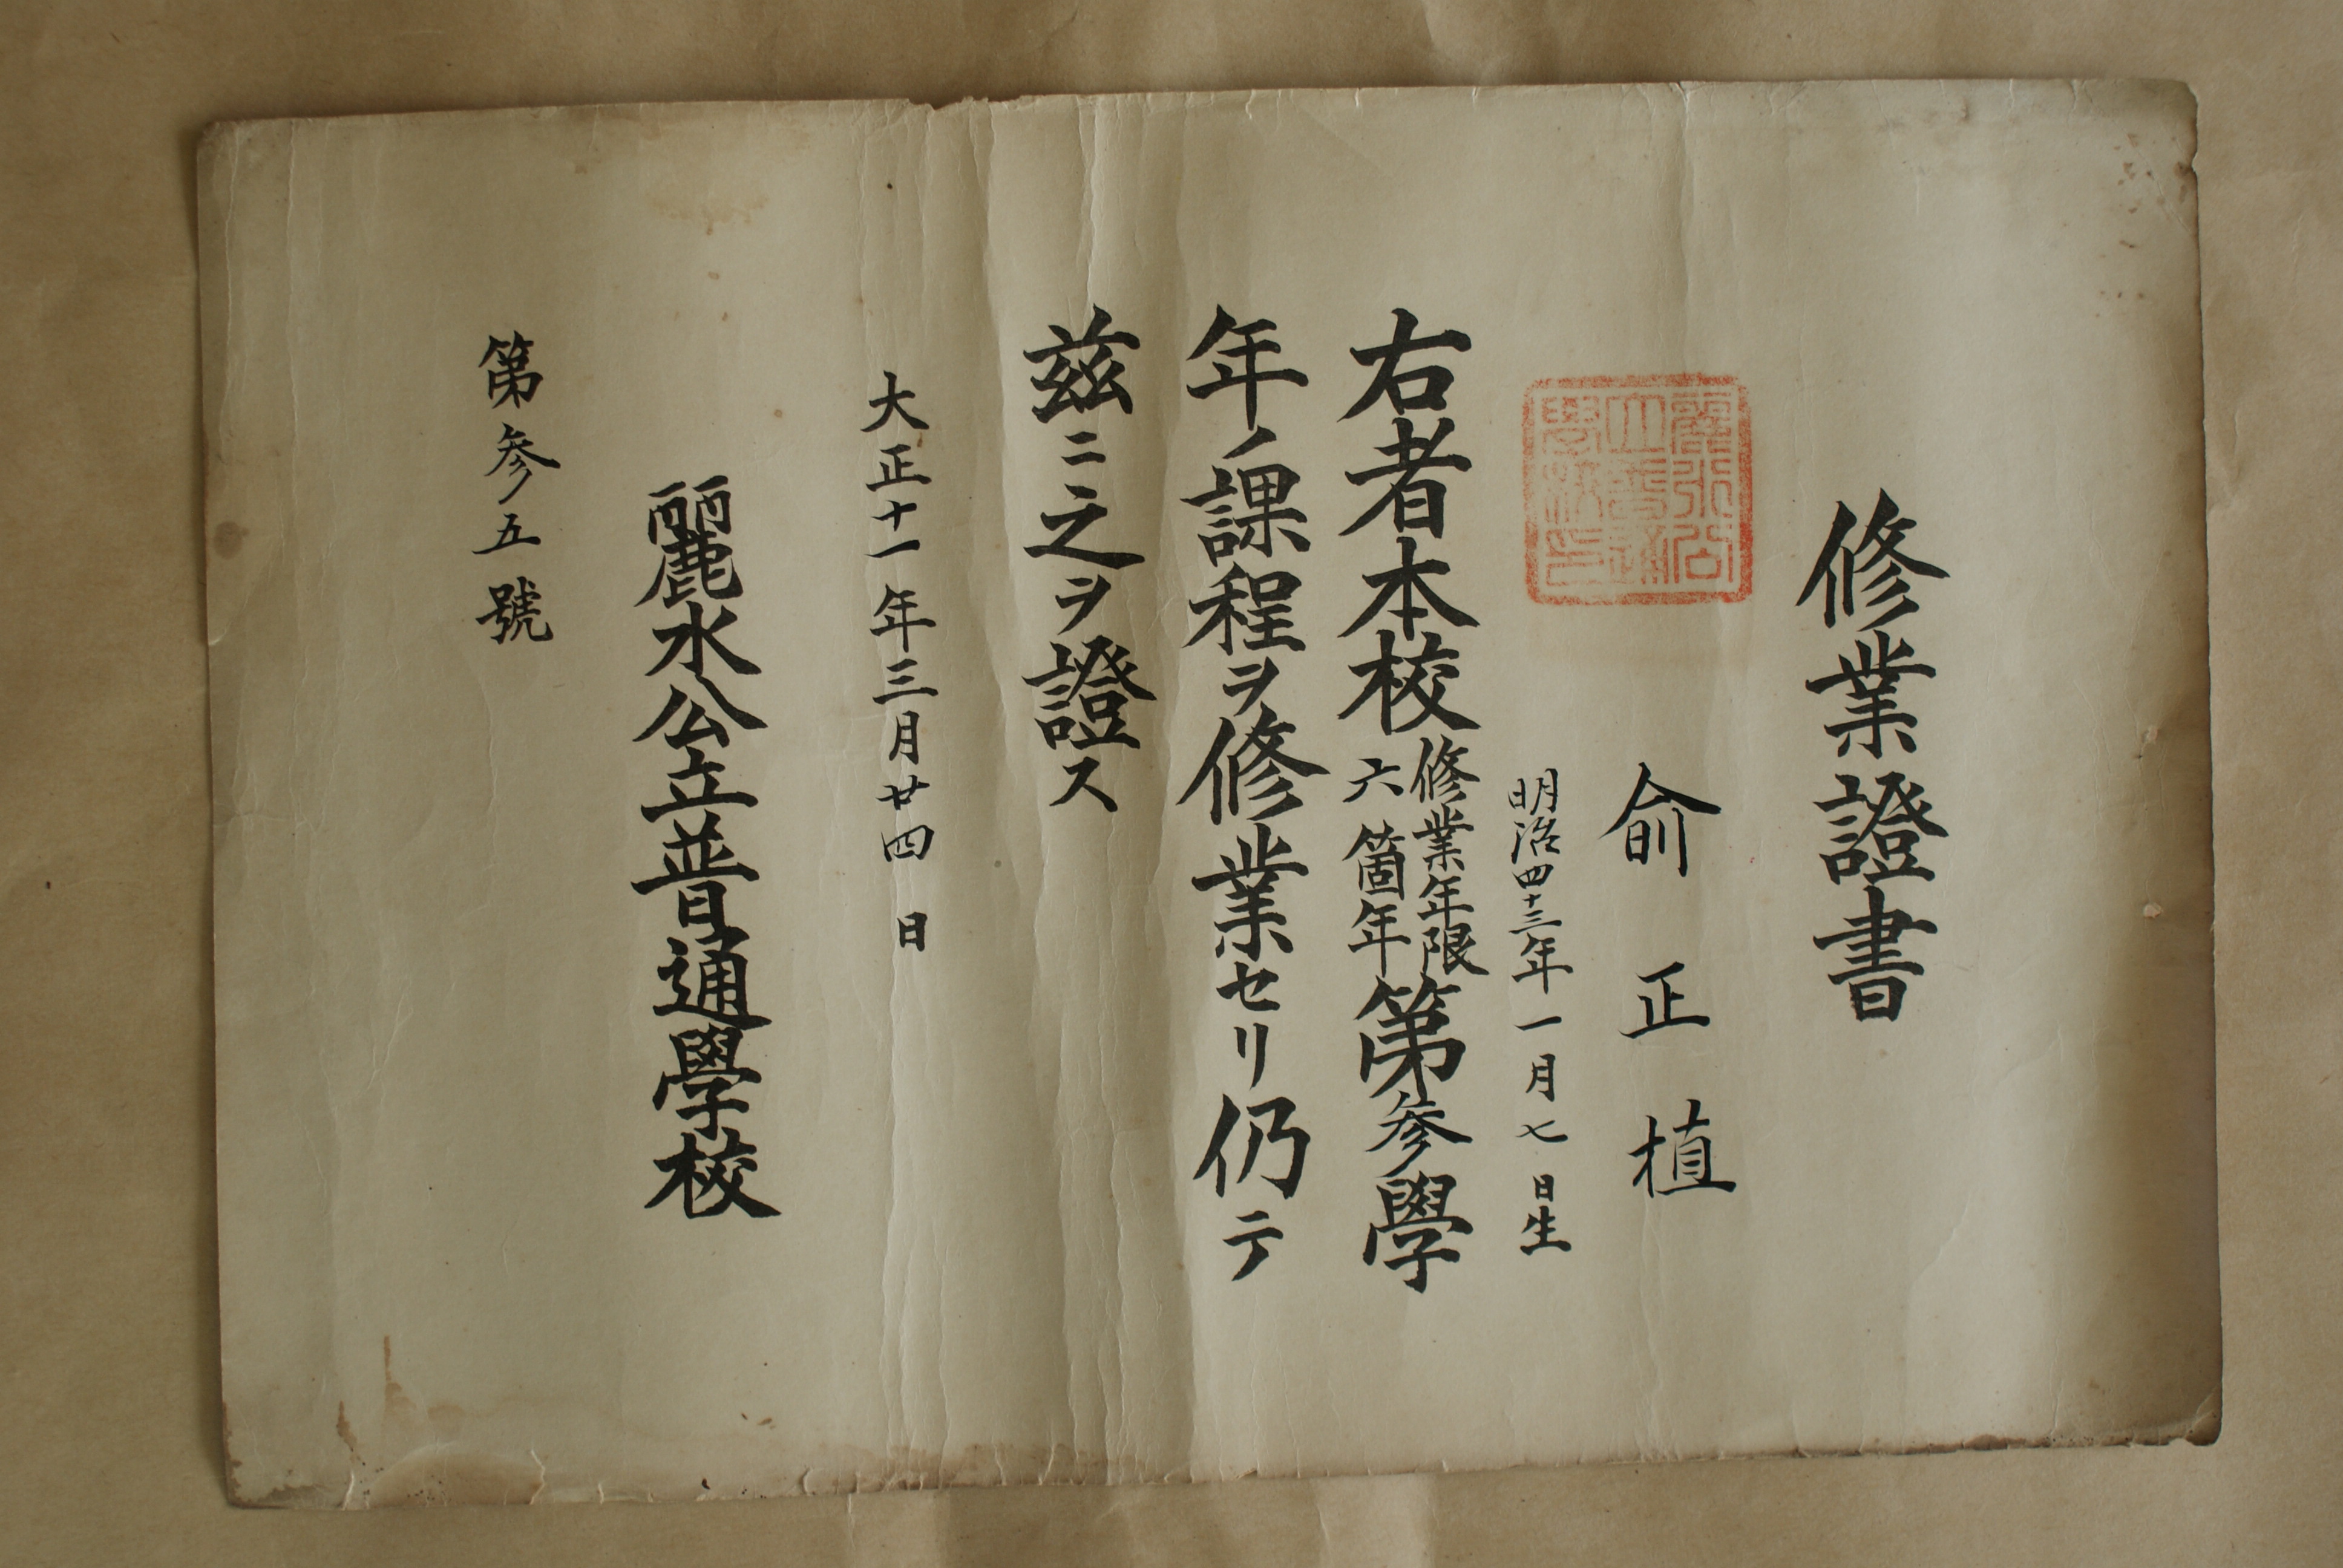 修業證書
俞正植
明治四十三年一月七日生
右者本校修業年限六箇年第參學
年ノ課程ヲ修業セリ仍テ
茲ニ之ヲ證ス
大正十一年三月廿四日
麗水公立普通學校
第參五號
麗水公立普通學校印